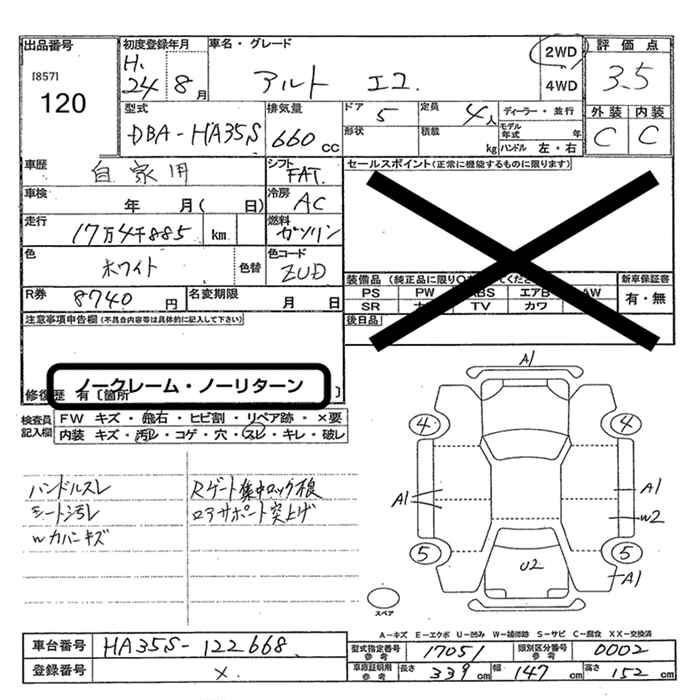 出品番号 初度登録年月 車名・グレード 2WD 評価点
[857] 120 H. 24年 8月 アルト エコ. 4WD 3.5
型式 排気量 ドア 5 定員 4人 ディーラー・並行 外装 内装
DBA-HA35S 660cc 形状 積載 kg モデル年式 年 ハンドル 左・右 C C
車歴 自家用 シフト FAT. セールスポイント(正常に機能するものに限ります)
車検 年 月( 日) 冷房 AC
走行 17万4千885 km 燃料 ガソリン
色 ホワイト 色替 色コード ZUD
装備品 (純正品に限り○ てください) 新車保証書
R券 8740円 名変期限 月 日 PS PW ABS エアB AW 有・無
SR TV カワ
注意事項申告欄(不具合内容等は具体的に記入して下さい) 後日品
ノークレーム・ノーリターン
修復歴 有 [箇所 ]
検査員記入欄 FW キズ・飛石・ヒビ割・リペア跡・×要
内装 キズ・汚レ・コゲ・穴・スレ・キレ・破レ
ハンドルスレ Rゲート集中ロック不良
シート汚レ ロアサポート突上げ
wカバーキズ
A1
4 4
A1 A1
W2
5 5
U2 A1
スペア
A-キズ E-エクボ U-凹み W-補修跡 S-サビ C-腐食 XX-交換済
車台番号 HA35S-122668. 型式指定番号参考 17051 類別区分番号参考 0002
登録番号 × 車庫証明用参考 長さ 339cm 幅 147cm 高さ 152cm